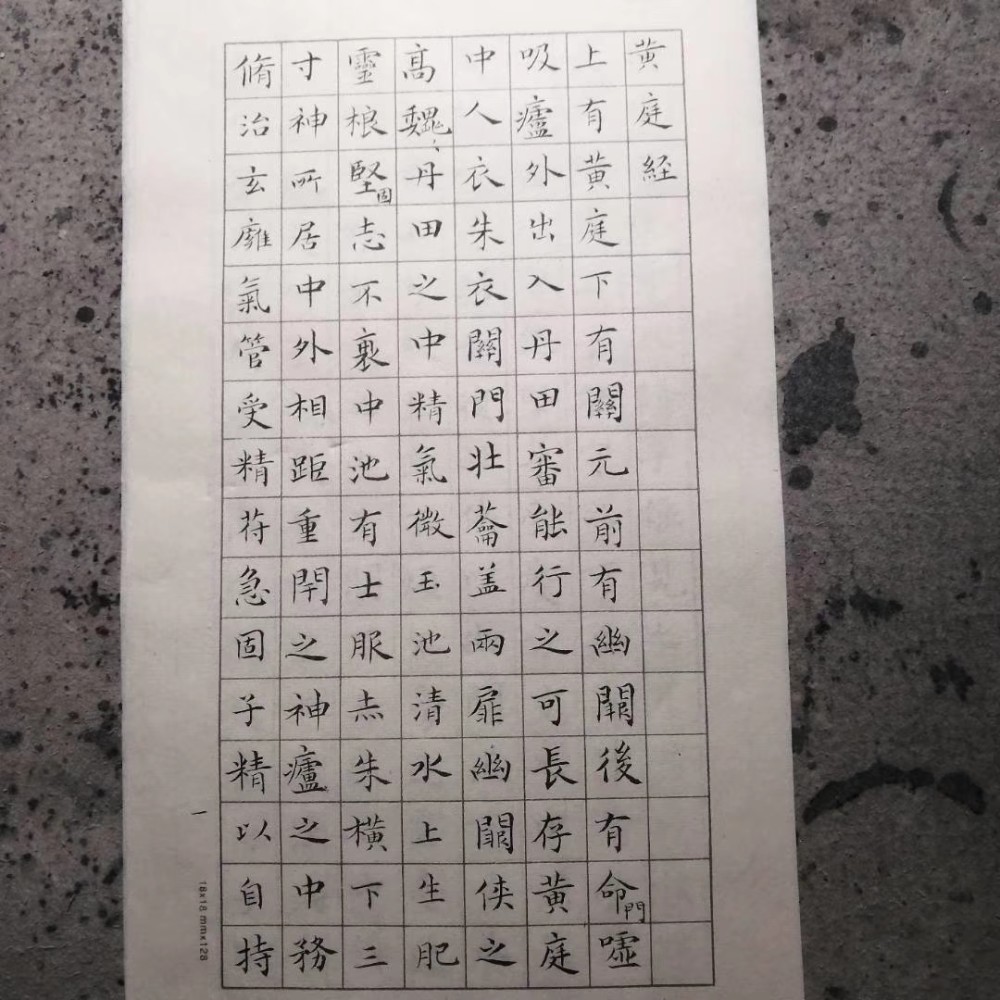 黄庭経
上有黄庭下有關元前有幽闕後有命門噓
吸廬外出入丹田審能行之可長存黄庭
中人衣朱衣關門壮蘥盖兩扉幽闕侠之
高巍〻丹田之中精氣微玉池清水上生肥
靈根堅固志不衰中池有士服赤朱横下三
寸神所居中外相距重閇之神廬之中務
脩治玄廱氣管受精苻急固子精以自持
一
18x18 mmx128